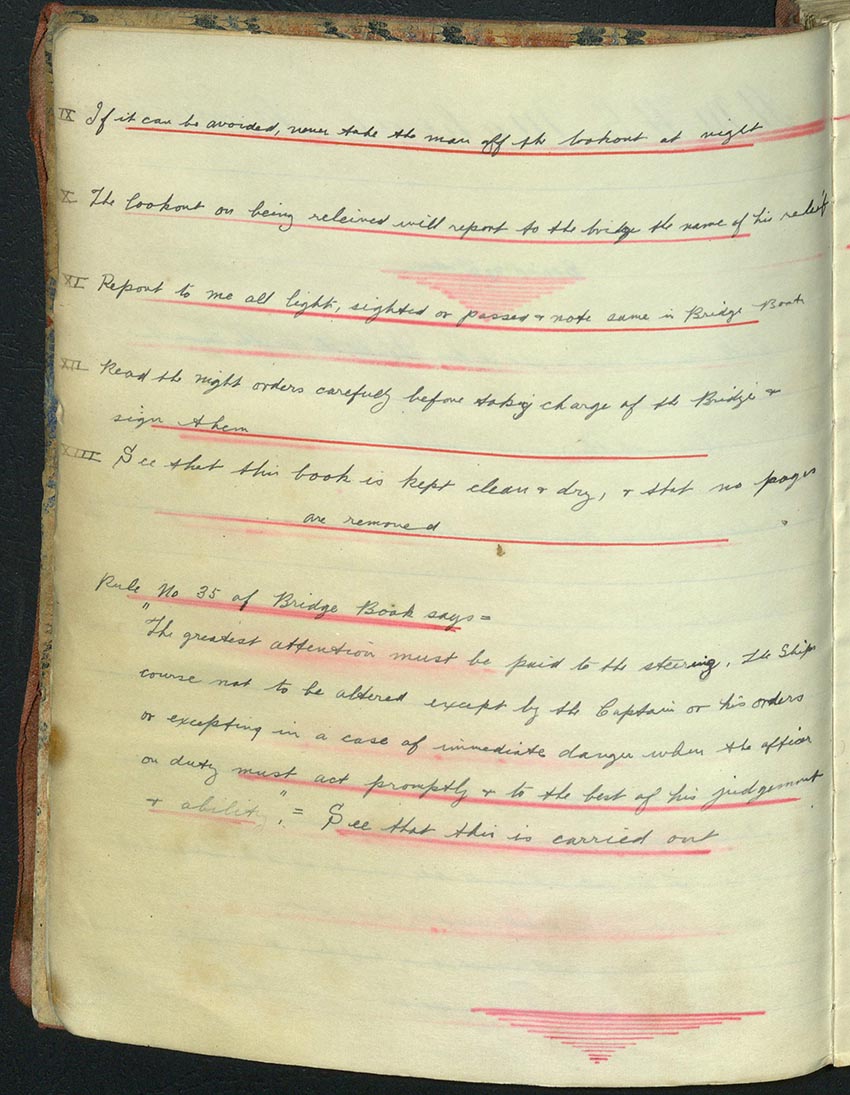 IX If it can be avoided, never take the man off the lookout at night
X The lookout on being releived will report to the bridge the name of his releif
XI Report to me all light, sighted or passed & note same in Bridge Book
XII Read the night orders carefully before taking charge of the Bridge &
sign them
XIII See that this book is kept clean & dry, & that no pages
are removed
Rule No 35 of Bridge Book says =
"The greatest attention must be paid to the steering. The Ships
course not to be altered except by the Captain or his orders
or excepting in a case of immediate danger when the officer
on duty must act promptly & to the best of his judgement
& ability". = See that this is carried out